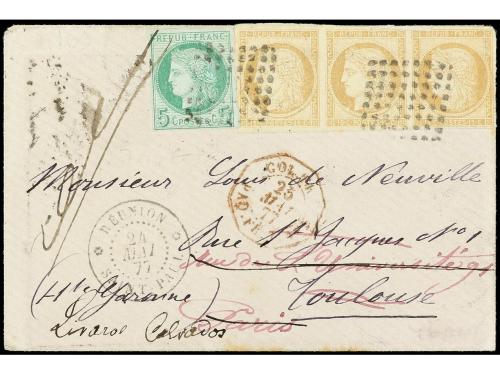 REPUB · FRANC REPUB · FRANC REPUB · FRANC REPUB · FRANC
5 5
Monsieur Louis de Neuville
RÉUNION
24
MAI
77
SAINT-PAUL
GOV.
25
MAI
Rue St Jacques No 1
Toulouse
(Hte Garonne)
Paris
Livarot Calvados